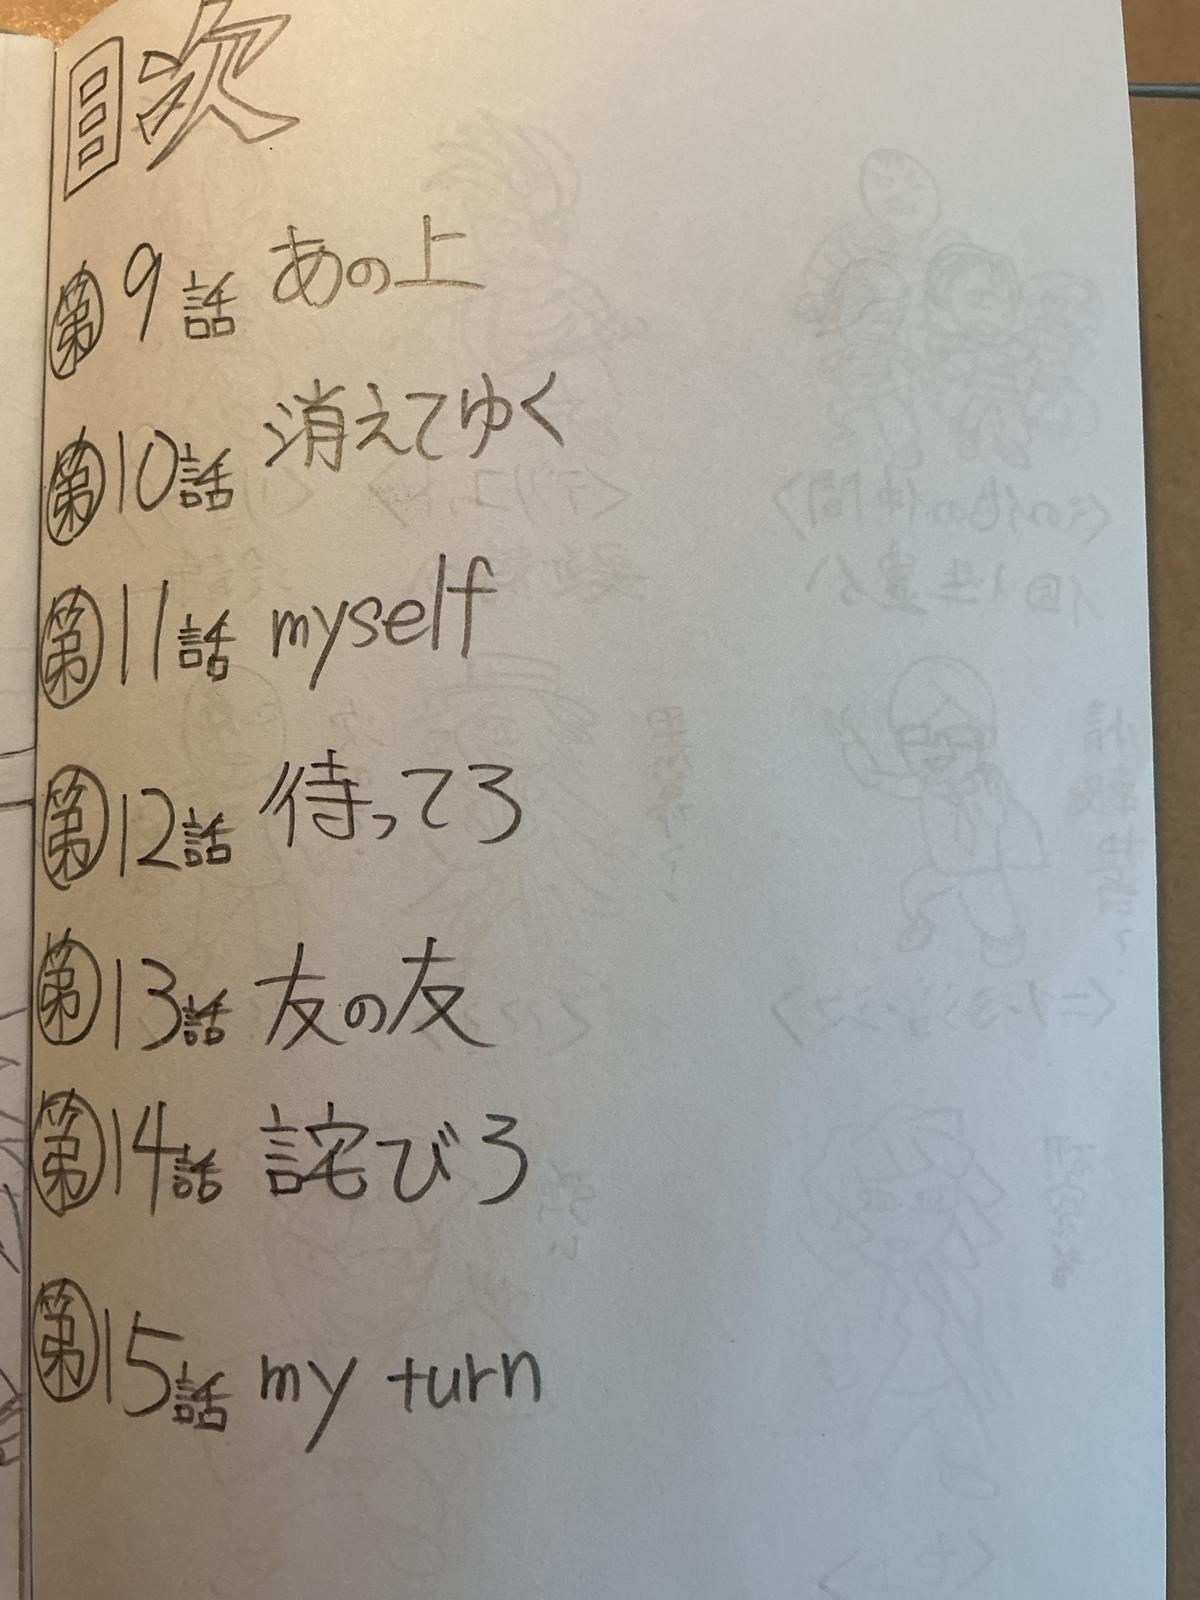 目次
第9話 あの上
第10話 消えてゆく
第11話 myself
第12話 待ってろ
第13話 友の友
第14話 詫びろ
第15話 my turn